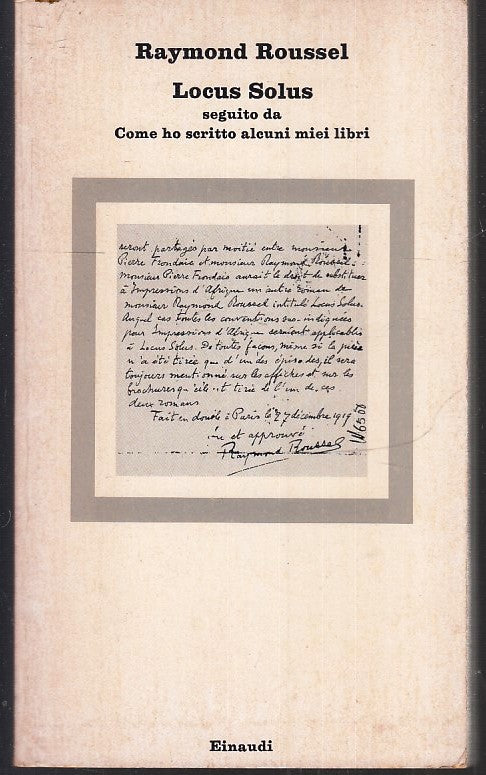 Raymond Roussel
Locus Solus
seguito da
Come ho scritto alcuni miei libri
seront partagés par moitié entre monsieur
Pierre Frondaie et monsieur Raymond Roussel.
Monsieur Pierre Frondaie aurait le droit de substituer
à Impressions d'Afrique un autre roman de
monsieur Raymond Roussel intitulé Locus Solus.
Auquel cas toutes les conventions sus-indiquées
pour Impressions d'Afrique seraient applicables
à Locus Solus. De toutes façons, même si la pièce
n'a été tirée que d'un des épisodes, il sera
toujours mentionné sur les affiches et sur les
brochures qu'elle est tirée de l'un de ces
deux romans
Fait en double à Paris le 27 décembre 1919
lu et approuvé
Raymond Roussel
Einaudi